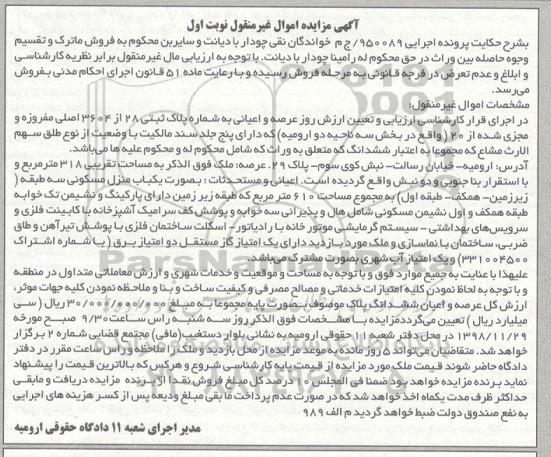 آگهی مزایده اموال غیرمنقول نوبت اول
بشرح حکایت پرونده اجرایی ۹۵۰۰۸۹/ج م خواندگان نقی چودار با دیانت و سایرین محکوم به فروش ماترک و تقسیم
وجوه حاصله بین وراث در حق محکوم له رامینا جودار با دیانت. با توجه به ارزیابی مال غیر منقول برابر نظریه کارشناسی
و ابلاغ و عدم تعرض در فرجه قانونی به مرحله فروش رسیده و با رعایت ماده ۵۱ قانون اجرای احکام مدنی بفروش
می‌رسد.
مشخصات اموال غیرمنقول:
در اجرای قرار کارشناسی ارزیابی و تعیین ارزش روز عرصه و اعیانی به شماره پلاک ثبتی ۲۸ از ۳۶۰۴ اصلی مفروزه و
مجزی شده از ۲۰ (واقع در بخش سه ناحیه دو ارومیه) که دارای پنج جلد سند مالکیت با وضعیت از نوع طلق سهم
الارث مشاع که مجموعا به اعتبار ششدانگ که متعلق به وراث که شامل محکوم له و محکوم علیه ها می‌باشد.
آدرس: ارومیه- خیابان رسالت- نبش کوی سوم- پلاک ۲۹. عرصه: ملک فوق الذکر به مساحت تقریبی ۳۱۸ مترمربع و
با استقرار بنا جنوبی و دو نبش واقع گردیده است. اعیانی و مستحدثات: بصورت یکباب منزل مسکونی سه طبقه (
زیرزمین- همکف- طبقه اول) به مجموع مساحت ۶۱۰ متر مربع که طبقه زیر زمین دارای پارکینگ و نشیمن تک خوابه
طبقه همکف و اول نشیمن مسکونی شامل هال و پذیرائی سه خوابه و پوشش کف سرامیک آشپزخانه با کابینت فلزی و
سرویس‌های بهداشتی - سیستم گرمایشی موتور خانه با رادیاتور - اسکلت ساختمان فلزی با پوشش تیرآهن و طاق
ضربی، ساختمان با نماسازی و ملک مورد بازدید دارای یک امتیاز گاز مستقل، دو امتیاز برق (با شماره اشتراک
۳۳۱۰۰۴۵۰۰) و یک امتیاز آب شهری بصورت مشترک می‌باشد.
علیهذا با عنایت به جمیع موارد فوق و با توجه به مساحت و موقعیت و خدمات شهری و ارزش معاملاتی متداول در منطقه
و با توجه به لحاظ نمودن کلیه امتیازات خدماتی و مصالح مصرفی و کیفیت ساخت و بنا و ملاحظه نمودن کلیه جهات موثر،
ارزش کل عرصه و اعیان ششدانگ پلاک موصوف بصورت پایه مجموعا به مبلغ ۳۰/۰۰۰/۰۰۰/۰۰۰ ریال (سی
میلیارد ریال) تعیین می‌گردد مزایده با مشخصات فوق الذکر روز سه شنبه راس ساعت ۹/۳۰ صبح مورخه
۱۳۹۸/۱۱/۲۹ در دفتر شعبه ۱۱ حقوقی ارومیه به نشانی بلوار دستغیب (مافی) مجتمع قضایی شماره ۲ برگزار
خواهد شد. متقاضیان می‌توانند ۵ روز مانده به موعد مزایده از محل بازدید و متکرا ملاحظه و راس ساعت مقرر در دفتر
دادگاه حاضر شوند قیمت ملک مورد مزایده از قیمت پایه کارشناسی شروع و هر کس که بالاترین قیمت را پیشنهاد
نماید برنده مزایده خواهد بود ضمنا فی المجلس ۱۰ درصد کل مبلغ فروش نقدا از برنده مزایده دریافت و مابقی
حداکثر ظرف مدت یکماه اخذ خواهد شد که در صورت عدم پرداخت مابقی مبلغ ودیعه پس از کسر هزینه های اجرایی
به نفع صندوق دولت ضبط خواهد گردید م الف ۹۸۹
مدیر اجرای شعبه ۱۱ دادگاه حقوقی ارومیه